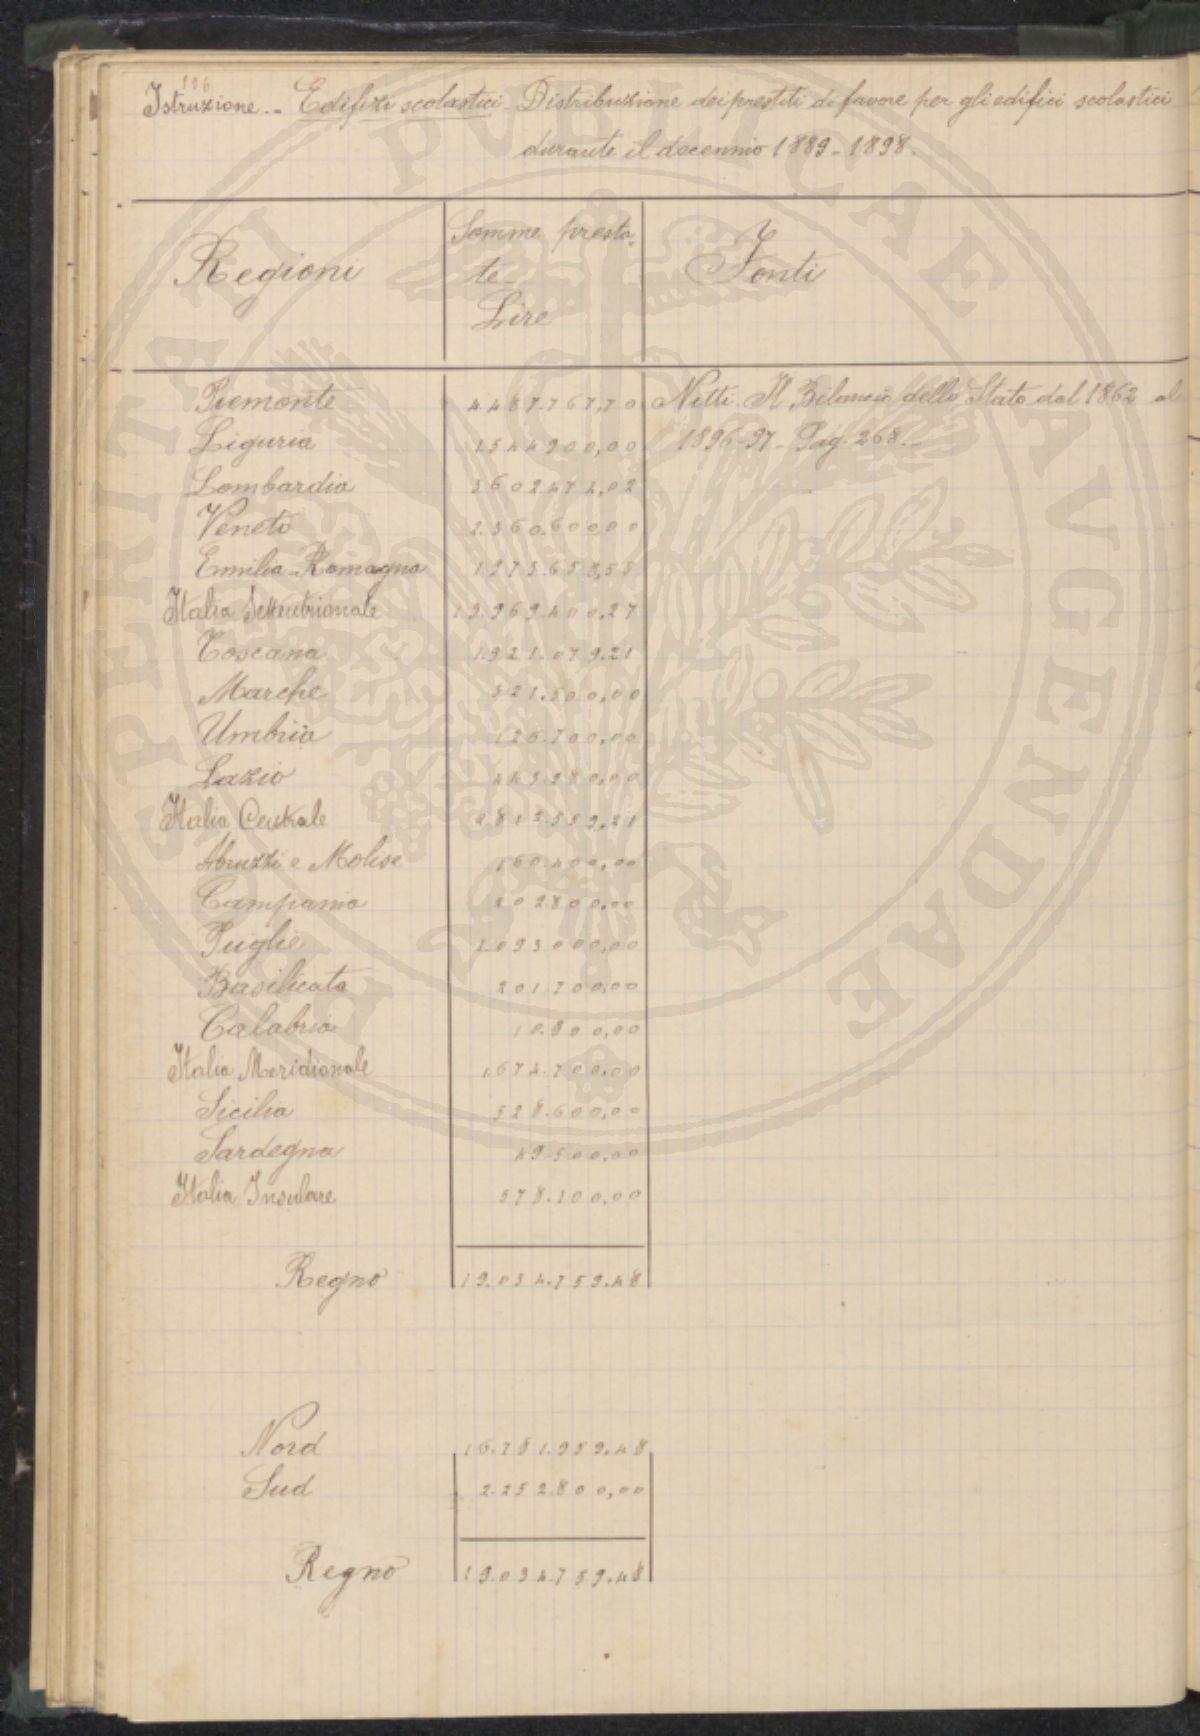 196
Istruzione.- Edifizi scolastici - Distribuzione dei prestiti di favore per gli edifici scolastici
durante il decennio 1889-1898.
Regioni
Somme presta-
te-
Lire
Fonti
Piemonte 4.487.767,70 Nitti. Il Bilancio dello Stato dal 1862 al
Liguria 1544900,00 1896-97- Pag. 268.-
Lombardia 3602474,02
Veneto 2.360.600,00
Emilia-Romagna 1973.658,55
Italia Settentrionale 13.969.400,27
Toscana 1.921.079,21
Marche 321.500,00
Umbria 126.700,00
Lazio 443.280,00
Italia Centrale 2.812.559,21
Abruzzi e Molise 160.400,00
Campania 202800,00
Puglie 1.093.000,00
Basilicata 201.700,00
Calabria 16.800,00
Italia Meridionale 1.674.700,00
Sicilia 528.600,00
Sardegna 49.500,00
Italia Insulare 578.100,00
Regno 19.034.759,48
Nord 16.781.959,48
Sud 2.252.800,00
Regno 19.034.759,48
PROSPERITATI PVBLICAE AVGENDAE